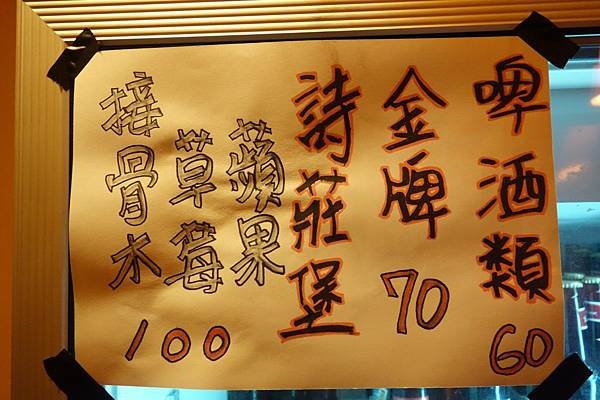 啤酒類 60
金牌 70
詩莊堡
蘋果
草莓
接骨木
100